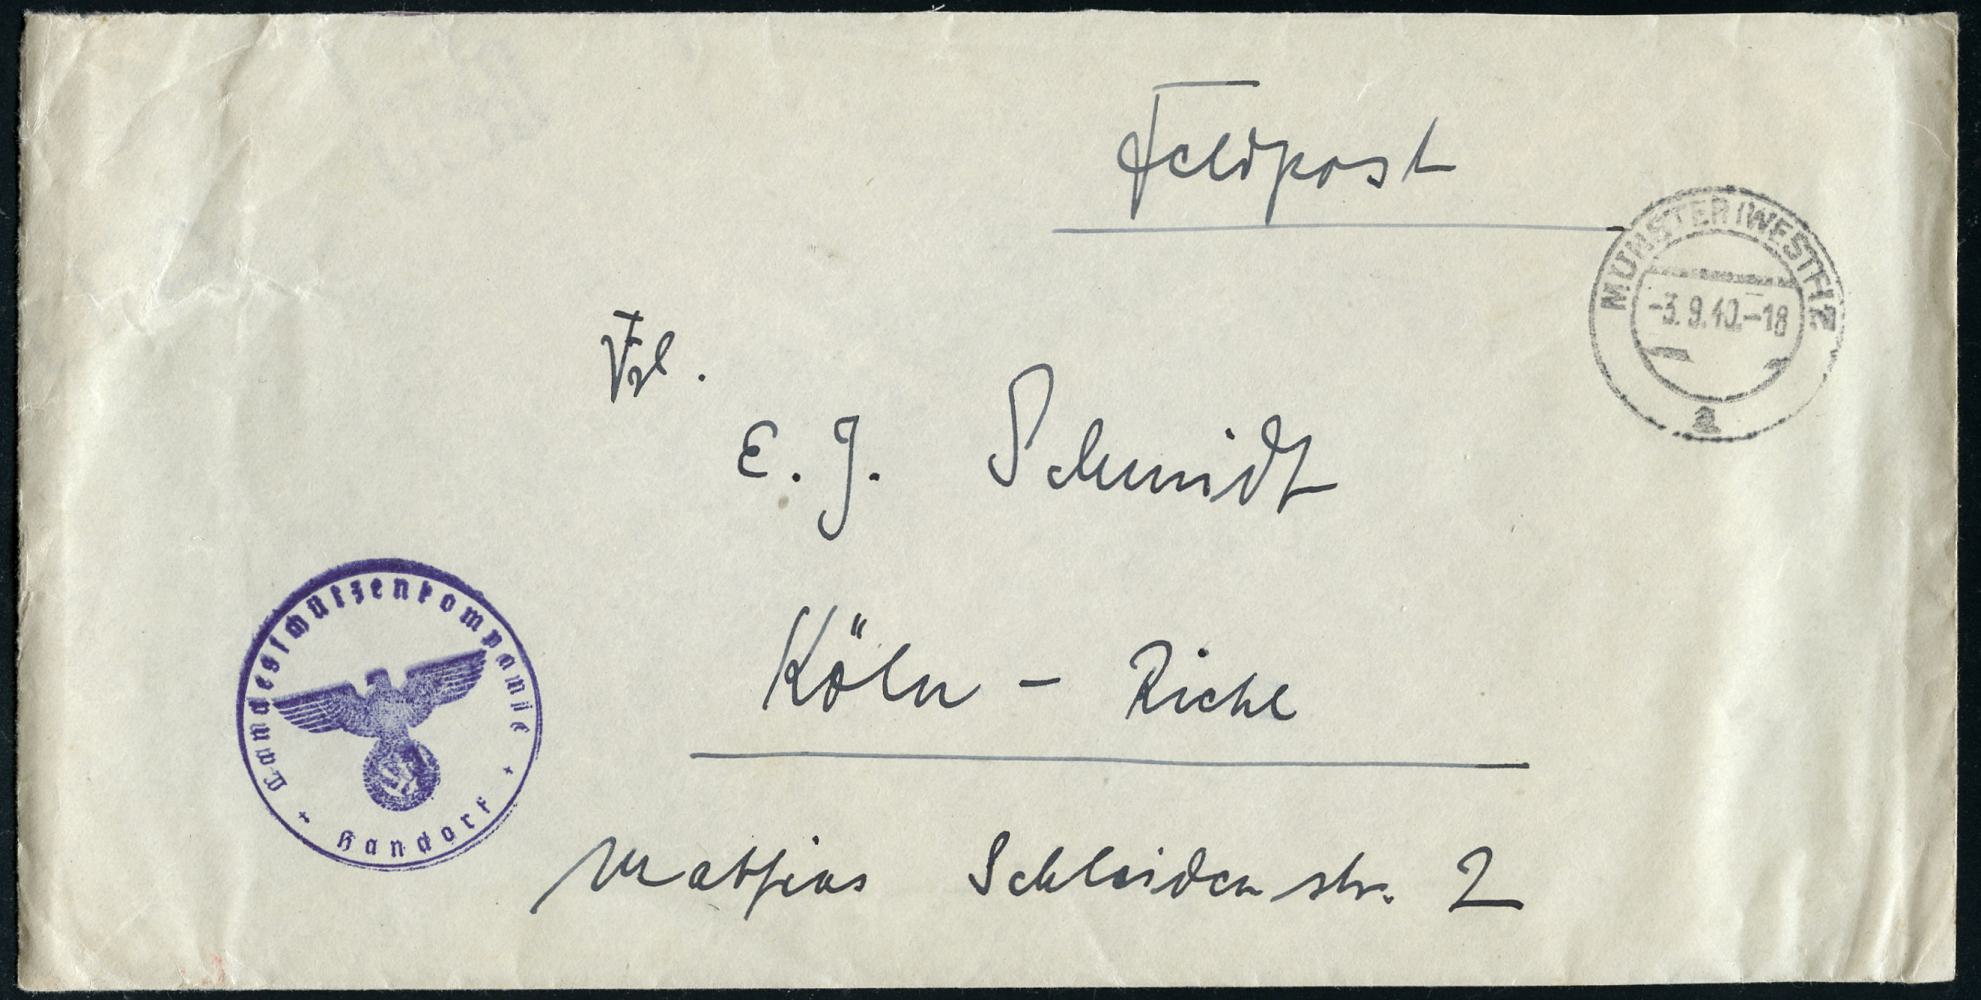 Feldpost
MÜNSTER (WESTF) 2
-3.9.40.-18
a
Frl.
E. J. Schmidt
Köln - Riehl
Landesschützenkompanie
+ Handorf +
Mathias Schleidenstr. 2